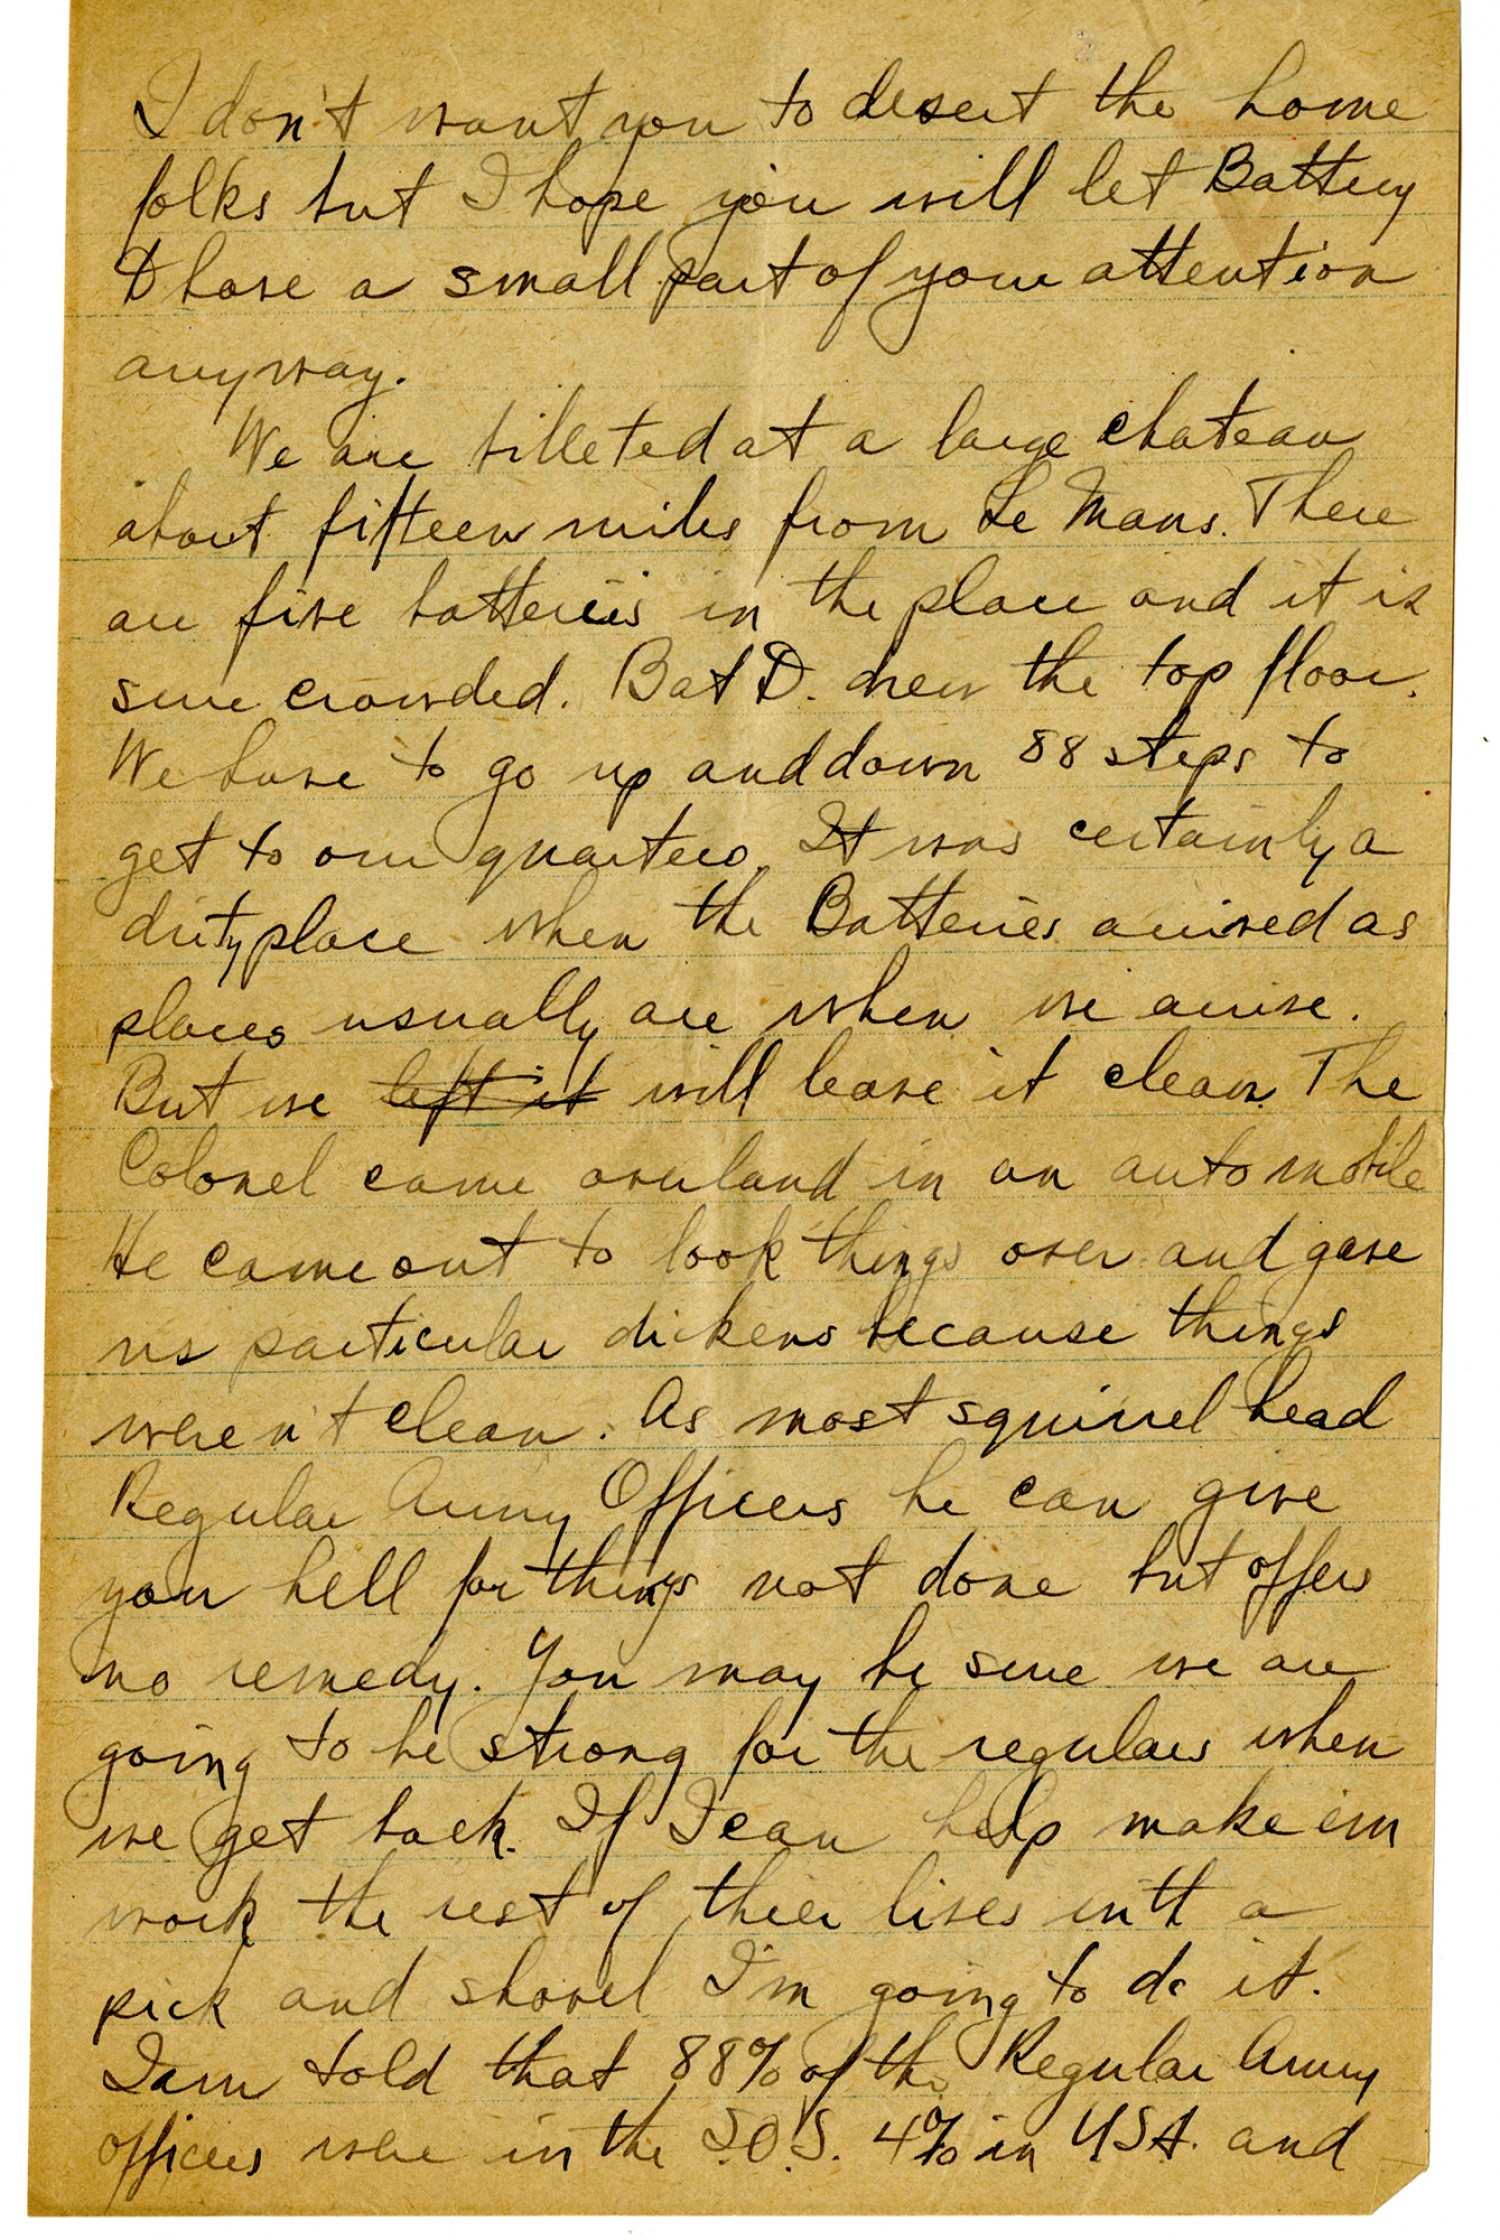 I don't want you to desert the home
folks but I hope you will let Battery
D have a small part of your attention
anyway.
We are billeted at a large chateau
about fifteen miles from Le Mans. There
are five batteries in the place and it is
sure crowded. Bat D. drew the top floor.
We have to go up and down 88 steps to
get to our quarters. It was certainly a
dirty place when the Batteries arrived as
places usually are when we arrive.
But we left it will leave it clean. The
Colonel came overland in an automobile
He came out to look things over and gave
us particular dickens because things
where n't clean. As most squirrel head
Regular Army Officers he can give
you hell for things not done but offers
no remedy. You may be sure we are
going to be strong for the regulars when
we get back. If I can help make em
work the rest of thier lives with a
pick and shovel I'm going to do it.
I am told that 88% of the Regular Army
officers were in the S.O.S. 4% in USA. and